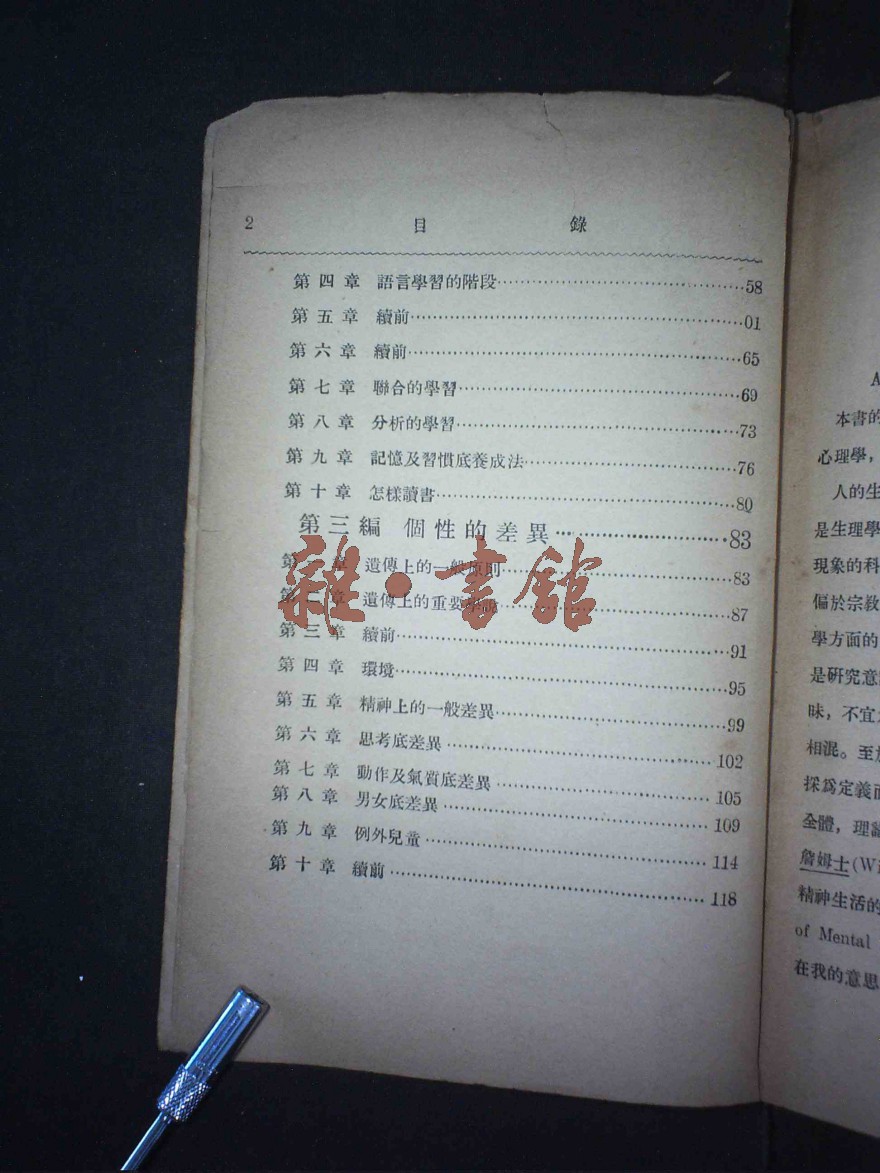 2 目錄
第四章 語言學習的階段……58
第五章 續前……01
第六章 續前……65
第七章 聯合的學習……69
第八章 分析的學習……73
第九章 記憶及習慣底養成法……76
第十章 怎樣讀書……80
第三編 個性的差異……83
第 章 遺傳上的一般原則……83
第二章 遺傳上的重要學說……87
第三章 續前……91
第四章 環境……95
第五章 精神上的一般差異……99
第六章 思考底差異……102
第七章 動作及氣質底差異……105
第八章 男女底差異……109
第九章 例外兒童……114
第十章 續前……118
雜·書館
A
本書的
心理學,
人的生
是生理學
現象的科
偏於宗教
學方面的
是研究意
昧,不宜
相混。至於
採爲定義而
全體,理論
詹姆士(W
精神生活的
of Mental
在我的意思